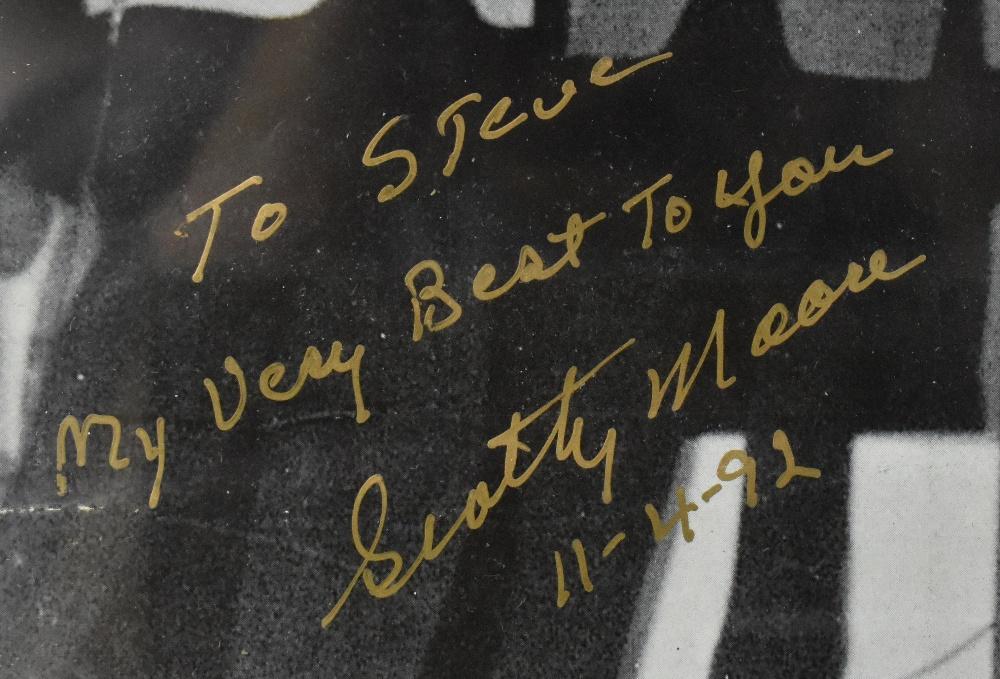 To Steve
My Very Best To you
Scotty Moore
11-4-92